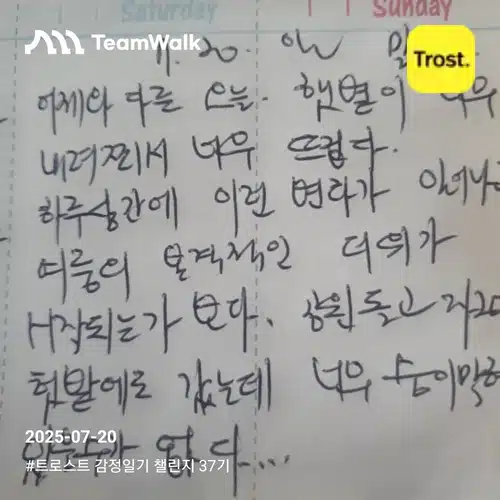 Saturday
Sunday
TeamWalk
Trost.
7. 20.
어제와 다른 오늘. 햇볕이 너무
내려쬐서 너무 뜨겁다.
하루상간에 이런 변화가 일어나
여름의 본격적인 더위가
시작되는가 보다. 공원 돌고
텃밭에로 갔는데 너무 숨이막혀
2025-07-20
없다...
#트로스트 감정일기 챌린지 37기